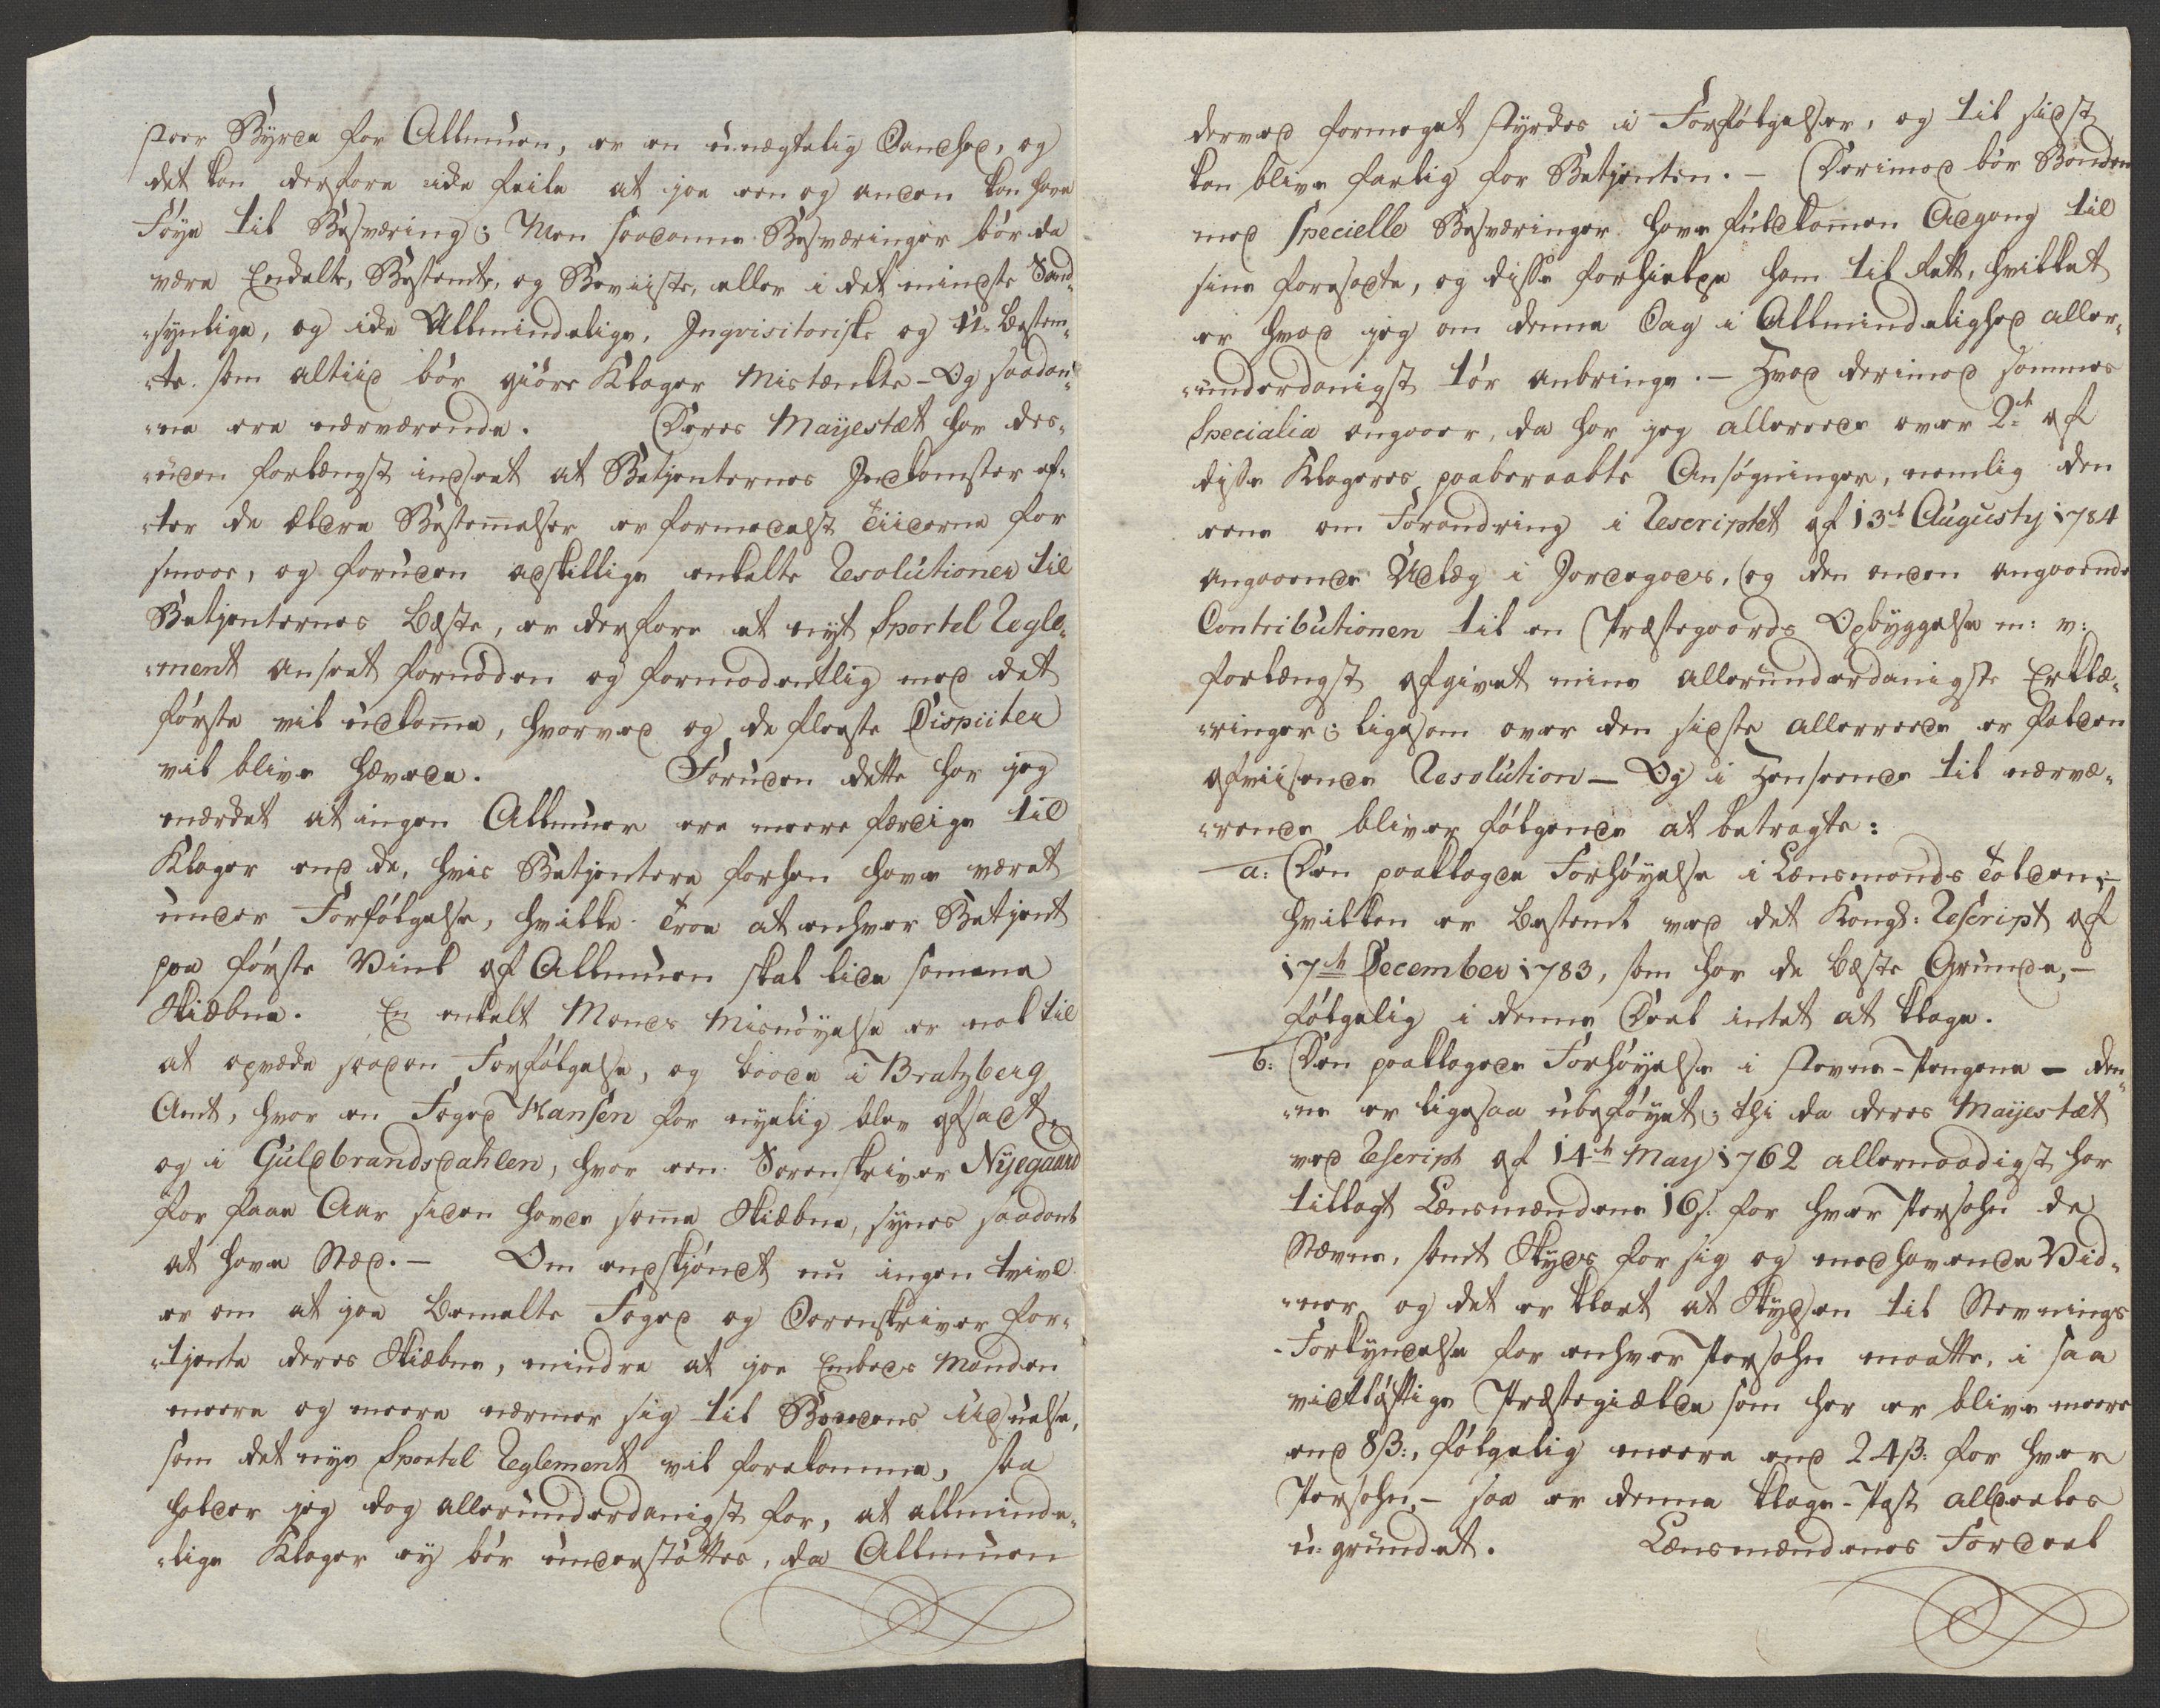 stoor Byrde for Allmuen, er en unægtelig Sandhed, og
det kan derfore icke feile at jeo een og anden kan have
Føye til Besværing; Men saadanne Besværinger bør da
være Endelte, Bestemte, og Beviiste, eller i det mindste Sand-
-synlige, og icke Allmindelige, Inqvisitoriske og U-bestem-
-te. som altiid bør giøre Klager Mistænkte - Og saadan-
-ne ere nærværende. Deres Mayestæt har des-
-uden forlængst indseet at Betjenternes Indkomster ef-
-ter de ældre Bestemmelser er formedelst Tiiderne for
smaae, og foruden adskillige enkelte Resolutioner til
Betjenternes beste, er derfore et nyt Sportel Regle-
-ment anseet fornøden og formodentlig med det
første vil udkomme, hvorved og de fleeste Dispüter
vil blive hævede. Foruden dette har jeg
mærket at ingen Allmuer ere meere færdige til
Klager end de, hvis Betjentere forhen have været
under Forfølgelse, hvilke troe at enhver Betjent
paa første Vink af Allmuen skal lide samme
Skiæbne. En enkelt Mands Misnøyelse er nok til
at opvæcke saadan Forfølgelse, og baade i Bratzberg
Amt, hvor en Foged Hansen for nyelig blev afsadt,
og i Guldbrandsdahlen, hvor een Sorenskriver Nyegaard
for faae Aar siden havde samme Skiæbne, synes saadant
at have Sted. - Om endskjøndt nu ingen tvivl
er om at joe bemelte Foged og Sorenskriver for-
-tjente deres Skiæbne, mindre at joe Embeds Manden
meere og meere nærmer sig til Bondens Udsuelse,
som det nye Sportel Reglement vil forekomme, saa
holder jeg dog allerunderdanigst for, at allminde-
-lige Klager ey bør understøttes, da Allmuen
derved formeget styrkes i Forfølgelser, og til sidst
kan blive farlig for Betjenten. - Derimod bør Bonden
med Specielle Besværinger have fuldkommen Adgang til
sine foresadte, og disse forhielpe ham til Rett, hvilket
er hvad jeg om denne Sag i Allmindelighed aller-
-underdanigst tør anbringe. - Hvad derimod sammes
Specialia angaaer, da har jeg allereede over 2de af
disse Klageres paaberaabte Ansøgninger, nemlig den
eene om Forandring i Rescriptet af 13de Augusty 1784
angaaende Udlæg i Jordegods, og den anden angaaende
Contributionen til en Præstegaards Opbyggelse m: v:
forlængst afgivet mine allerunderdanigste Erklæ-
-ringer; ligesom over den sidste allereede er falden
afviisende Resolution - Og i Henseende til nærvæ-
-rende bliver følgende at betragte:
a: Den paaklagede Forhøyelse i Lænsmands Tolden, -
hvilken er bestemt ved det Kongl: Rescript af
17de December 1783, som har de beste Grunde, -
følgelig i denne Deel intet at klage.
b: Den paaklagede Forhøyelse i Stevne-Pengene - den-
-ne er ligesaa ubeføyet; thi da deres Mayestæt
ved Rescript af 14de May 1762 allernaadigst har
tillagt Lænsmændene 16 s. for hver Persohn de
Stævne, samt Skyds for sig og medhavende Vid-
-ner, og det er klart at Skydsen til Stevnings
-Forkyndelse for enhver Persohn maatte, i saa
vidtløftige Præstegiælde som her er blive meere
end 8 ß:, følgelig meere end 24 ß: for hver
Persohn, - saa er denne Klage-Post alldeeles
u-grundet. Lænsmændenes Fordeel